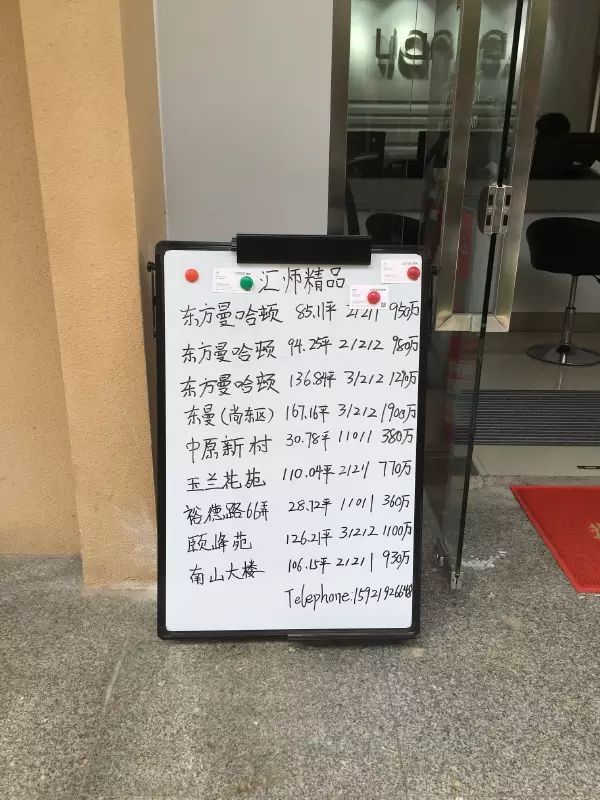 汇师精品
东方曼哈顿 85.11平 2/2/1 950万
东方曼哈顿 94.25平 2/2/2 980万
东方曼哈顿 136.84平 3/2/2 1290万
东曼(尚东区) 167.16平 3/2/2 1900万
中原新村 30.78平 1/0/1 380万
玉兰花苑 110.04平 2/2/1 770万
裕德路66弄 28.72平 1/0/1 360万
颐峰苑 126.21平 3/2/2 1100万
南山大楼 106.15平 2/2/1 930万
Telephone:15921926648